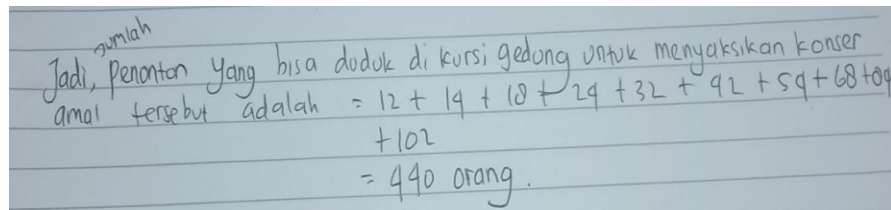 jumlah
Jadi, Penonton yang bisa duduk di kursi gedung untuk menyaksikan konser
amal tersebut adalah = 12 + 14 + 18 + 24 + 32 + 42 + 54 + 68 + 84
+ 102
= 440 orang.